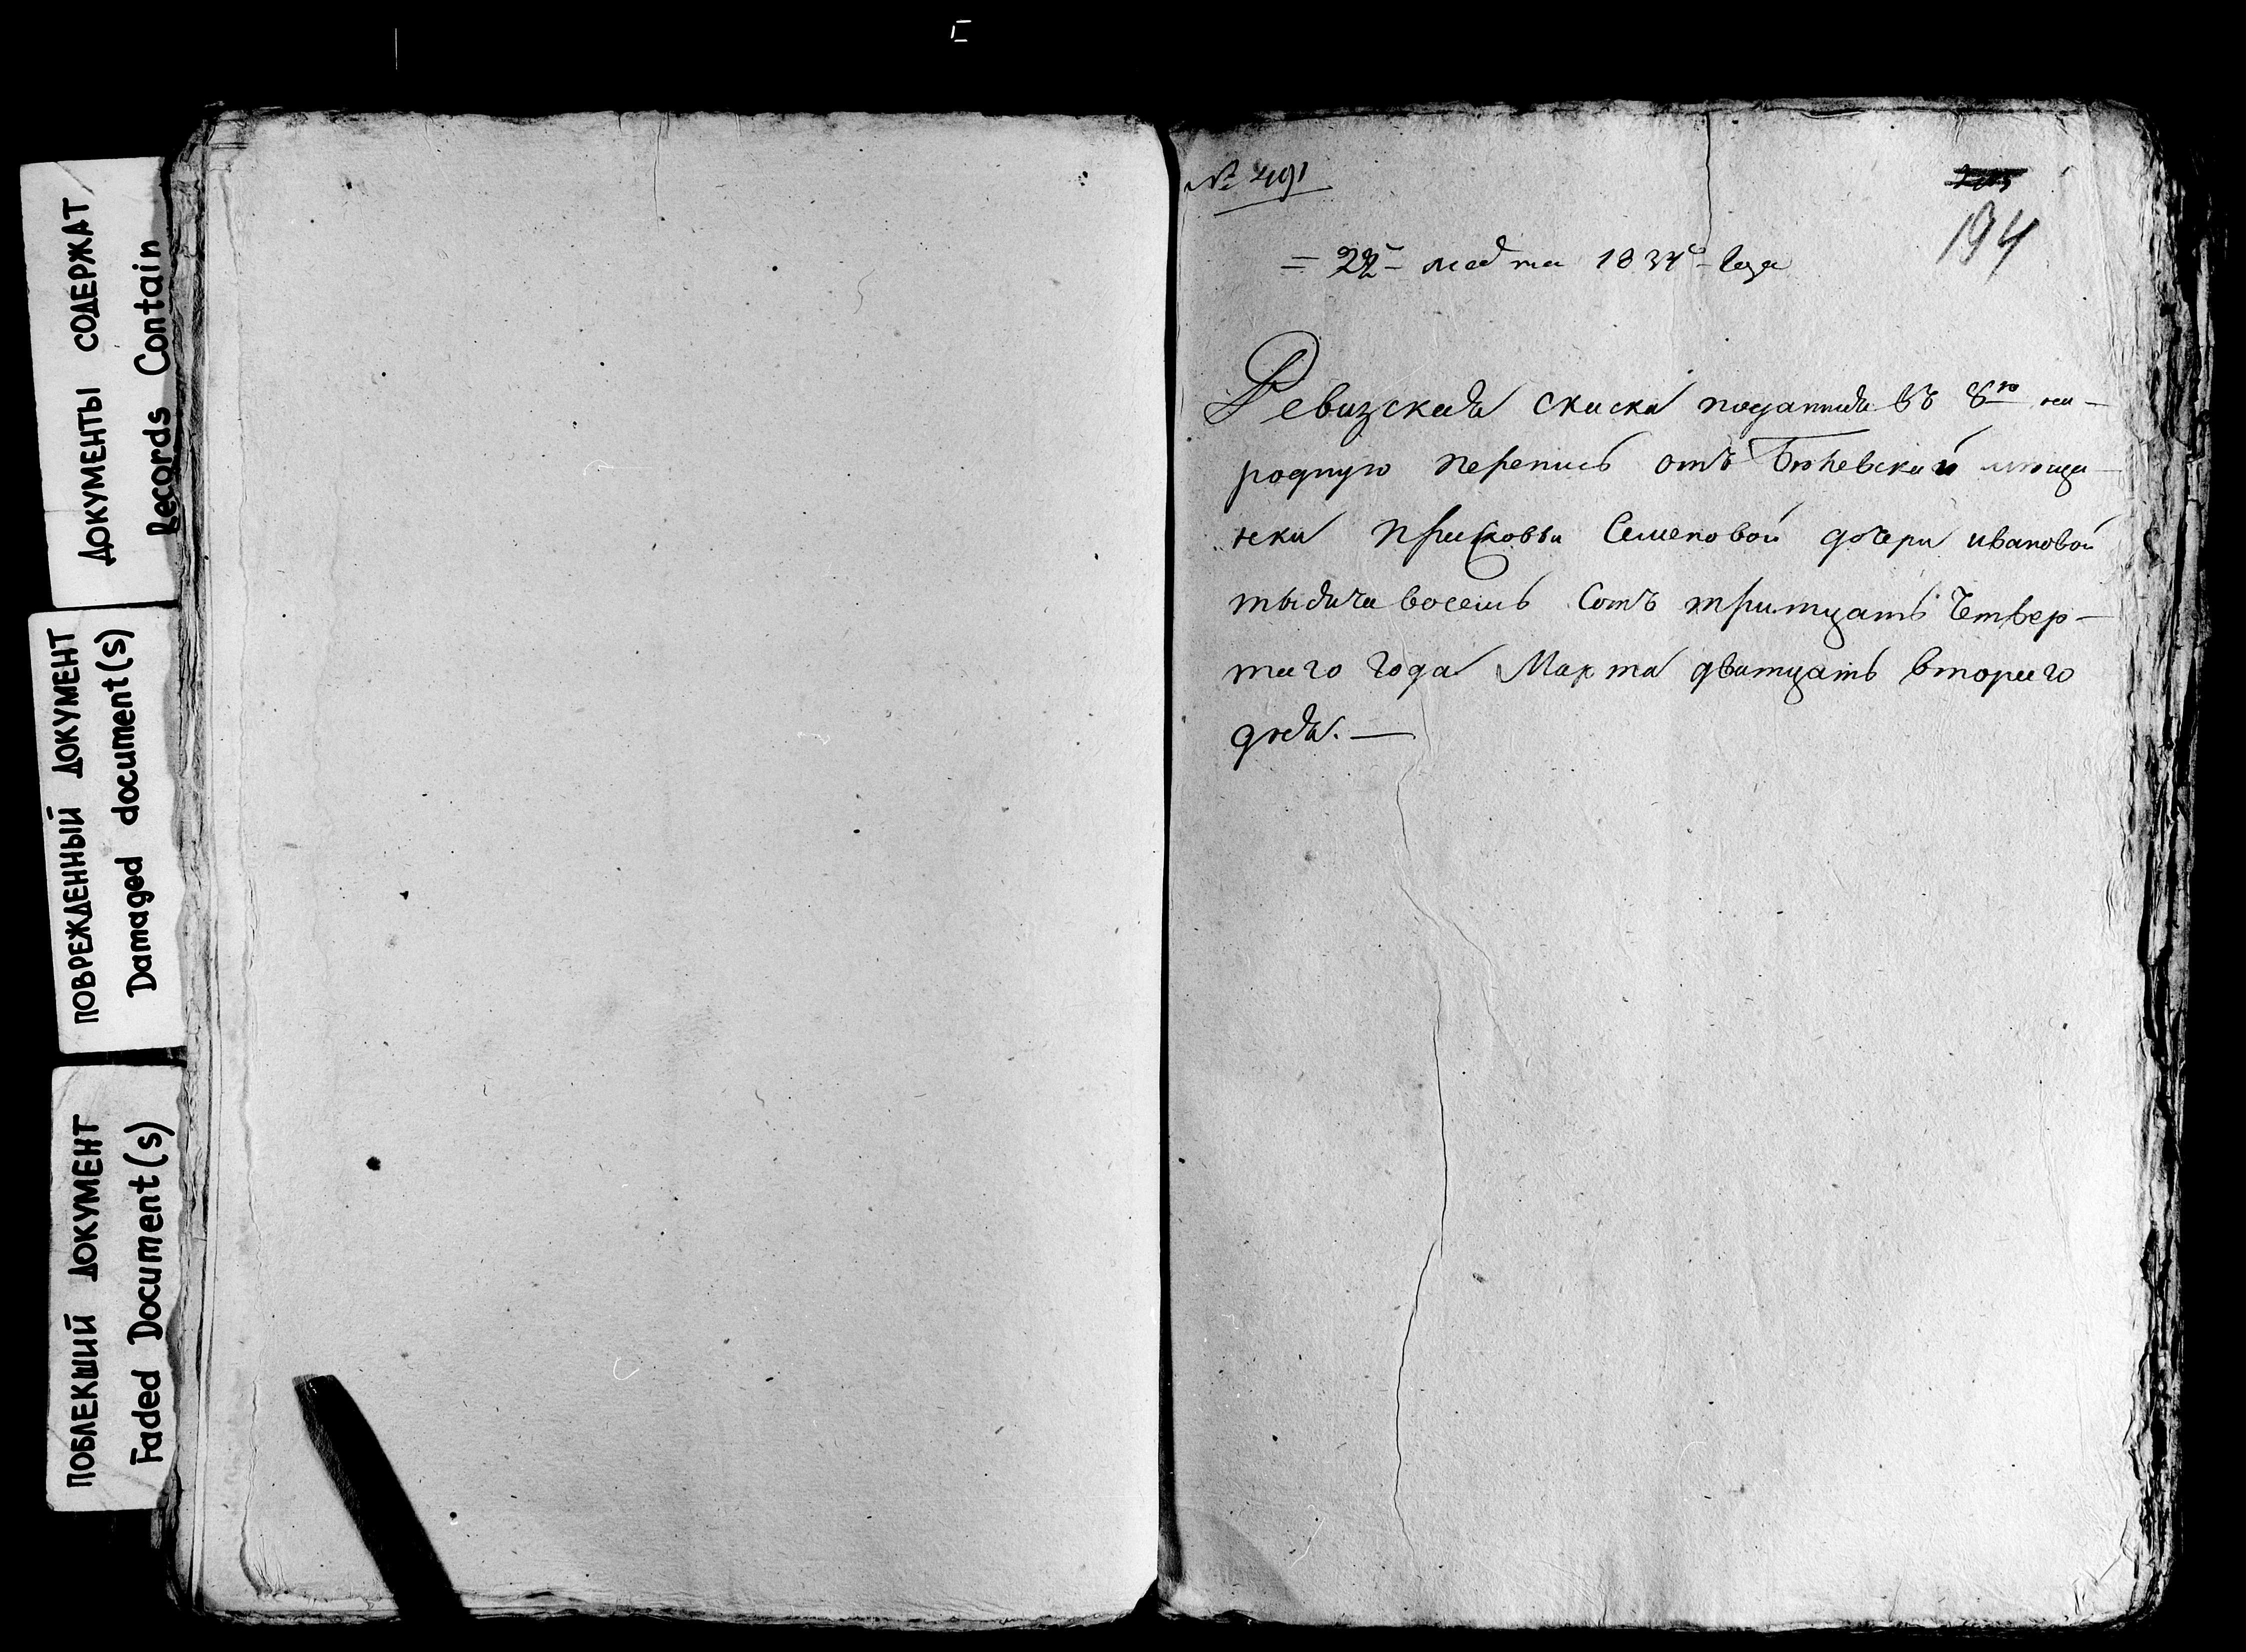 ДОКУМЕНТЫ СОДЕРЖАТ
Records Contain
ПОВРЕЖДЕННЫЙ ДОКУМЕНТ
Damaged document(s)
ПОБЛЕКШИЙ ДОКУМЕНТ
Faded Document(s)
№ 491
194
= 22 марта 1834 года
Ревизская скаска поданная въ 8ю на-
родную перепись отъ мещан-
ски Прасковьи Семеновой дочери ивановой
тысяча восемь сотъ тритцать четвер-
таго года Марта дватцать втораго
дня. —